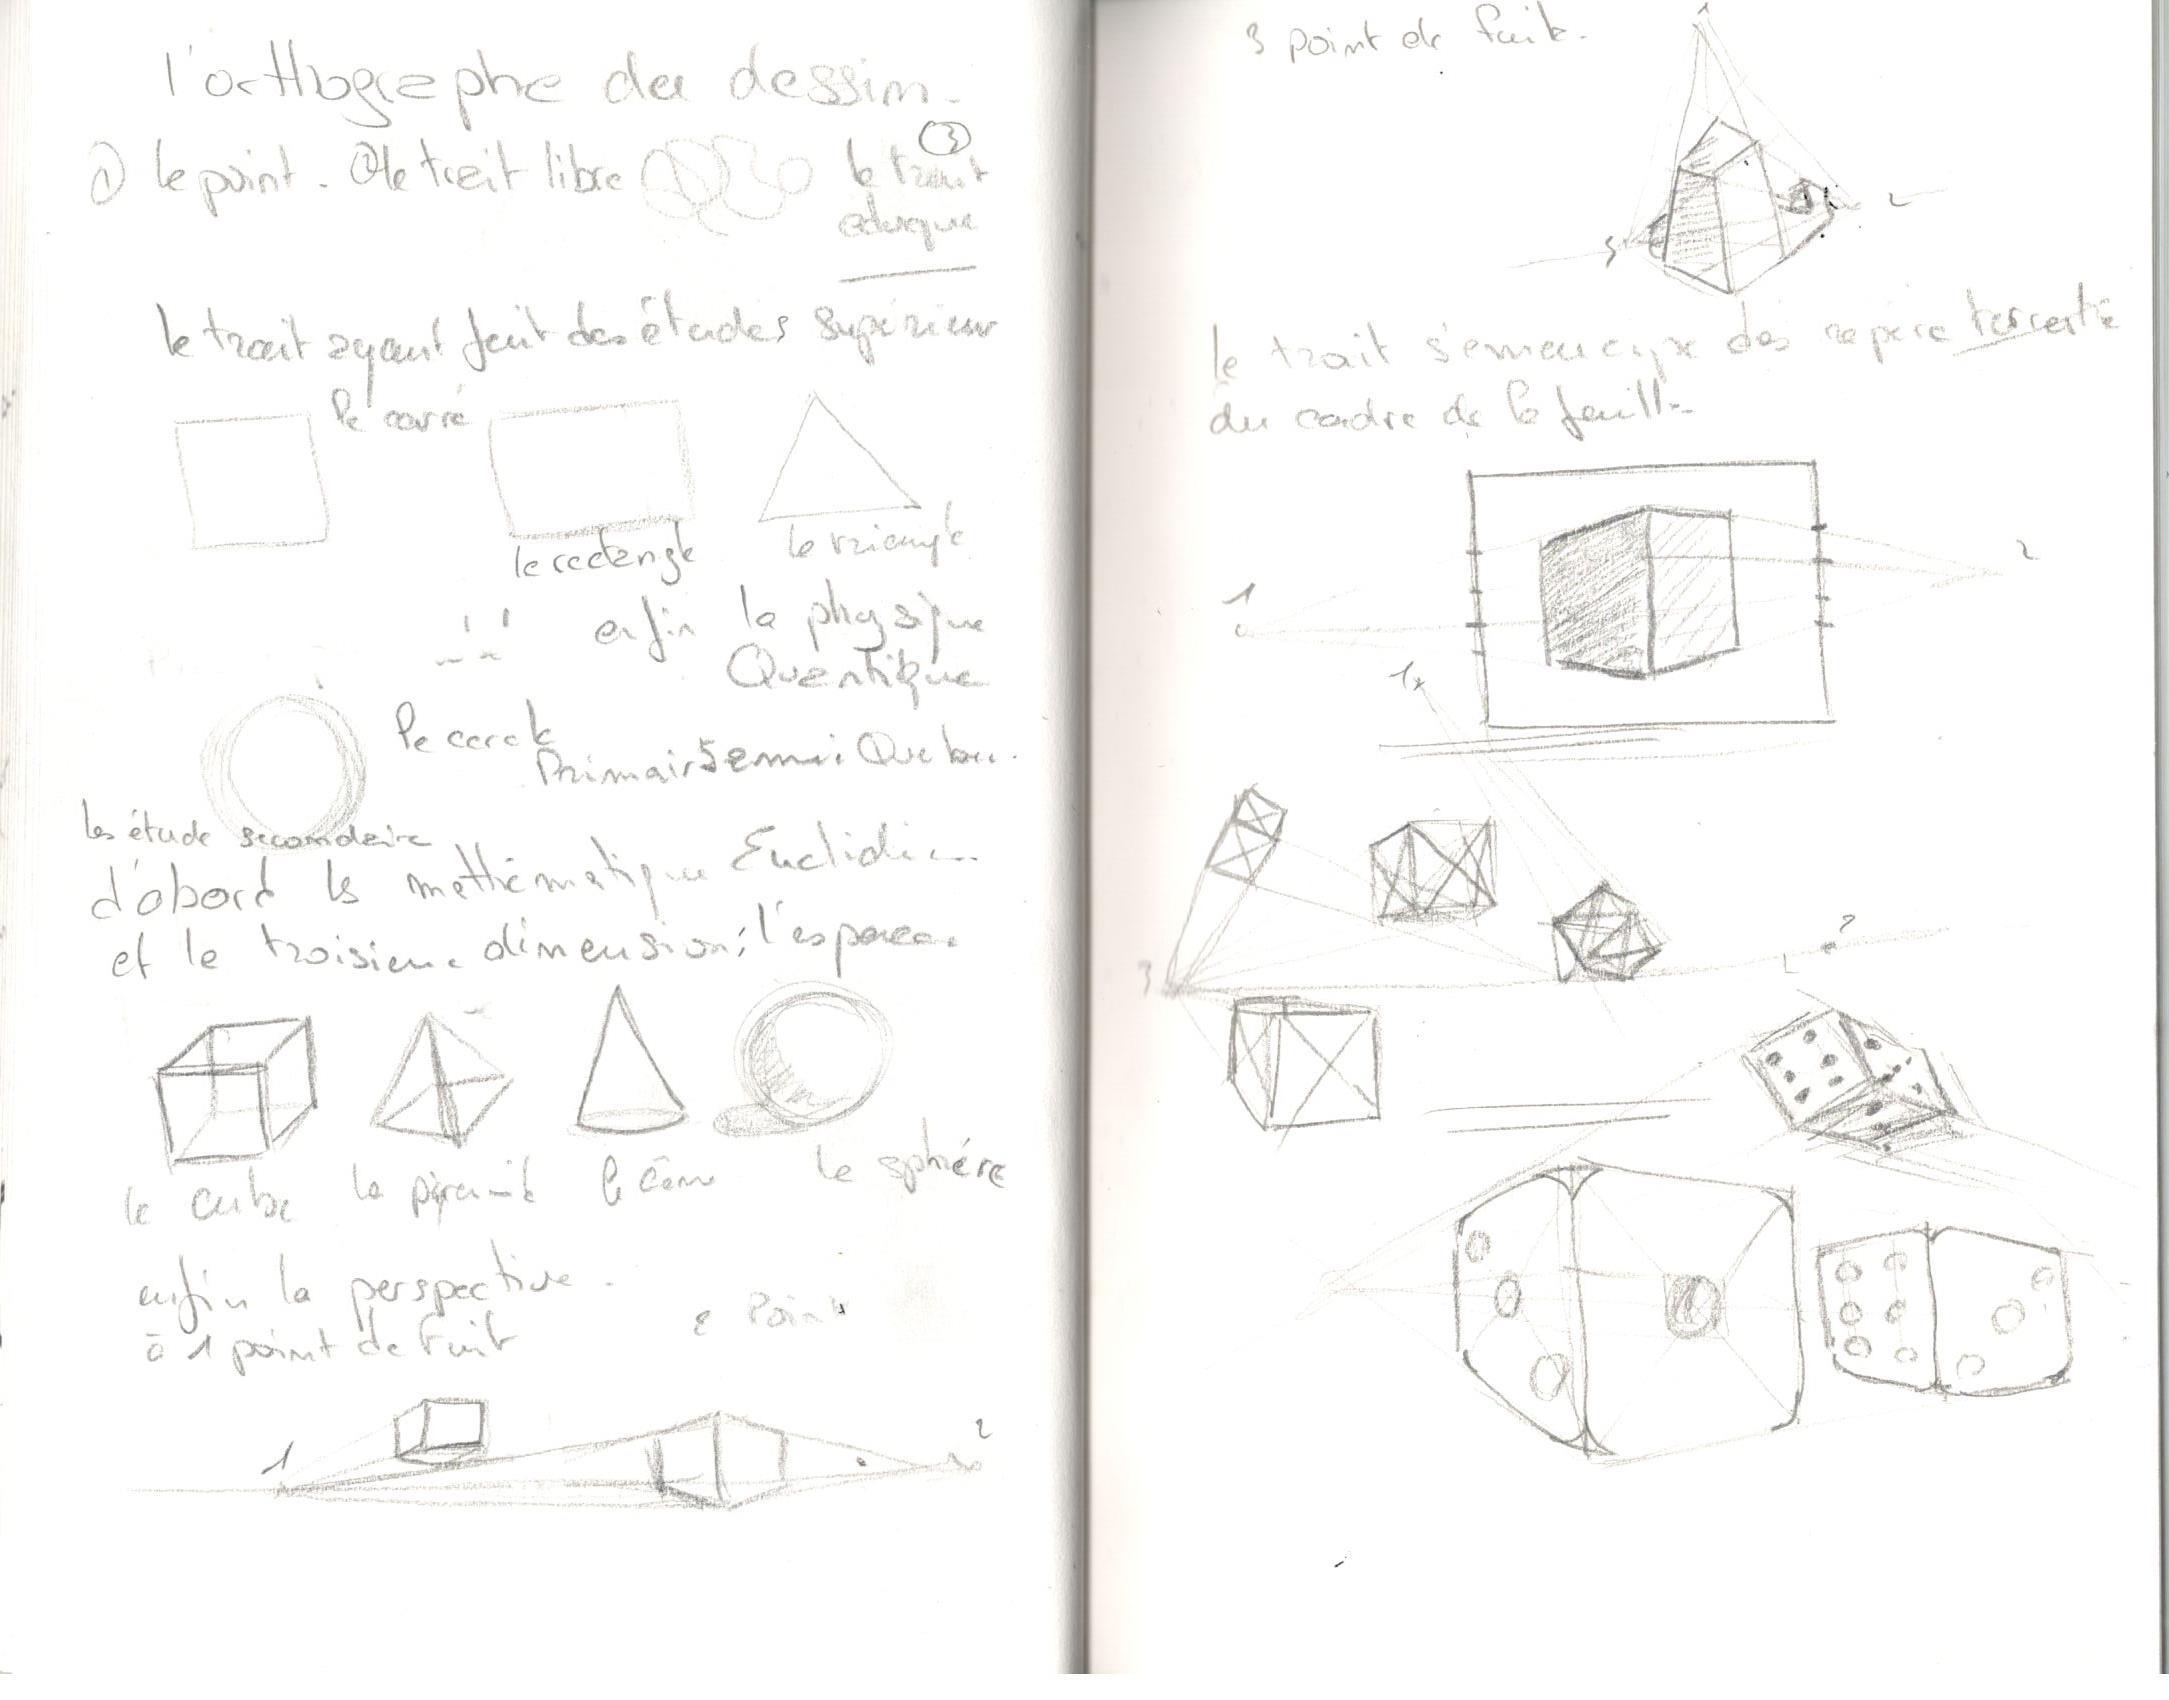 l'orthographe du dessin.
① le point. ② le trait libre
③
le trait
éduqué
le trait ayant fait des études supérieur
le carré
le rectangle
le triangle
enfin la physique
Quantique
le cercle
les étude secondaire
d'abord la mathématique Euclidi
et le troisieme dimension; l'espace.
le cube la pyramid le cône la sphère
enfin la perspective.
à 1 point de Fuit
2 Point
1
2
3 point de fuite.
1
2
3
le trait s'émancipe des repère terrestre
du cadre de la feuille
1
2
1
2
3